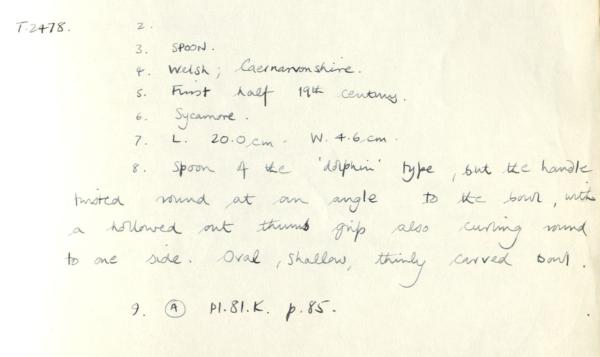 T.2478. 2.
3. SPOON.
4. Welsh; Caernarvonshire.
5. First half 19th century.
6. Sycamore.
7. L. 20.0 cm. W. 4.6 cm.
8. Spoon of the 'dolphin' type, but the handle
twisted round at an angle to the bowl, with
a hollowed out thumb grip also curling round
to one side. Oval, shallow, thinly carved bowl.
9. Ⓐ Pl.81.K. p.85.